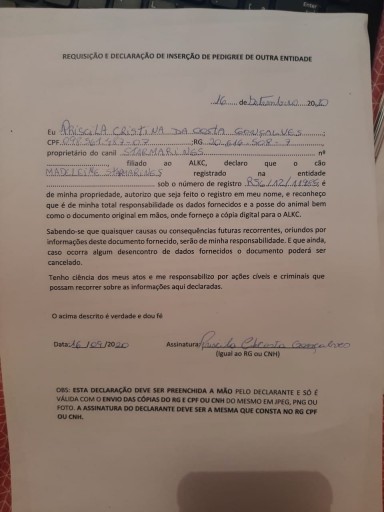 REQUISIÇÃO E DECLARAÇÃO DE INSERÇÃO DE PEDIGREE DE OUTRA ENTIDADE
16 de Setembro 2020
Eu PRISCILA CRISTINA DA COSTA GONÇALVES
CPF RG
proprietário do canil STARMARINES nº
filiado ao ALKC, declaro que o cão
MADELEINE STARMARINES registrado na entidade
sob o número de registro é
de minha propriedade, autorizo que seja feito o registro em meu nome, e reconheço
que é de minha total responsabilidade os dados fornecidos e a posse do animal bem
como o documento original em mãos, onde forneço a cópia digital para o ALKC.
Sabendo-se que quaisquer causas ou consequências futuras recorrentes, oriundos por
informações deste documento fornecido, serão de minha responsabilidade. E que ainda,
caso ocorra algum desencontro de dados fornecidos o documento poderá ser
cancelado.
Tenho ciência dos meus atos e me responsabilizo por ações cíveis e criminais que
possam recorrer sobre as informações aqui declaradas.
O acima descrito é verdade e dou fé
Data: 16/09/2020 Assinatura: Gonçalves
(Igual ao RG ou CNH)
OBS: ESTA DECLARAÇÃO DEVE SER PREENCHIDA A MÃO PELO DECLARANTE E SÓ É
VÁLIDA COM O ENVIO DAS CÓPIAS DO RG E CPF OU CNH DO MESMO EM JPEG, PNG OU
FOTO. A ASSINATURA DO DECLARANTE DEVE SER A MESMA QUE CONSTA NO RG CPF
OU CNH.